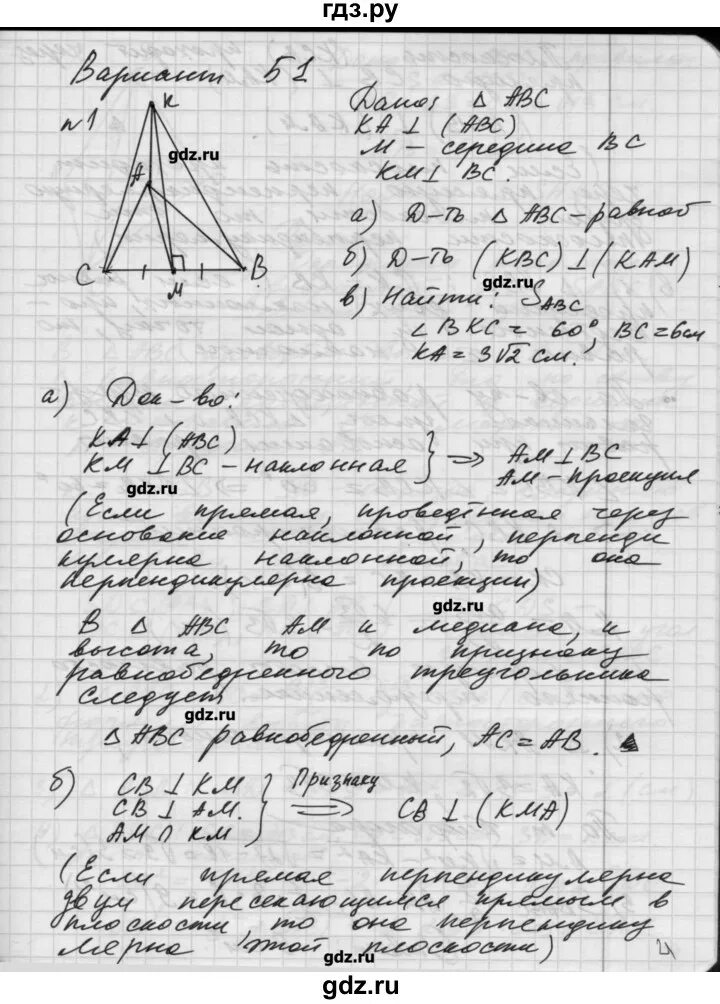 гдз.ру
Вариант Б1
№1
K
A
C
M
B
gdz.ru
Дано: △ ABC
KA ⊥ (ABC)
M – середина BC
KM ⊥ BC.
а) Д-ть △ ABC – равноб
б) Д-ть (KBC) ⊥ (KAM)
gdz.ru
в) Найти: S ABC
∠ BKC = 60°, BC = 6см
KA = 3√2 см.
а) Док-во:
KA ⊥ (ABC)
KM ⊥ BC – наклонная } => AM ⊥ BC
AM – проекция
gdz.ru
(Если прямая, проведённая через
основание наклонной, перпенди
кулярна наклонной, то она
перпендикулярна проекции)
gdz.ru
В △ ABC AM и медиана, и
высота, то по признаку
равнобедренного треугольника
следует
gdz.ru
△ ABC равнобедренный, AC = AB.
б) CB ⊥ KM
CB ⊥ AM.
AM ∩ KM } Признаку => CB ⊥ (KMA)
(Если прямая перпендикулярна
двум пересекающимся прямым в
плоскости, то она перпендику
лярна этой плоскости)
gdz.ru
gdz.ru